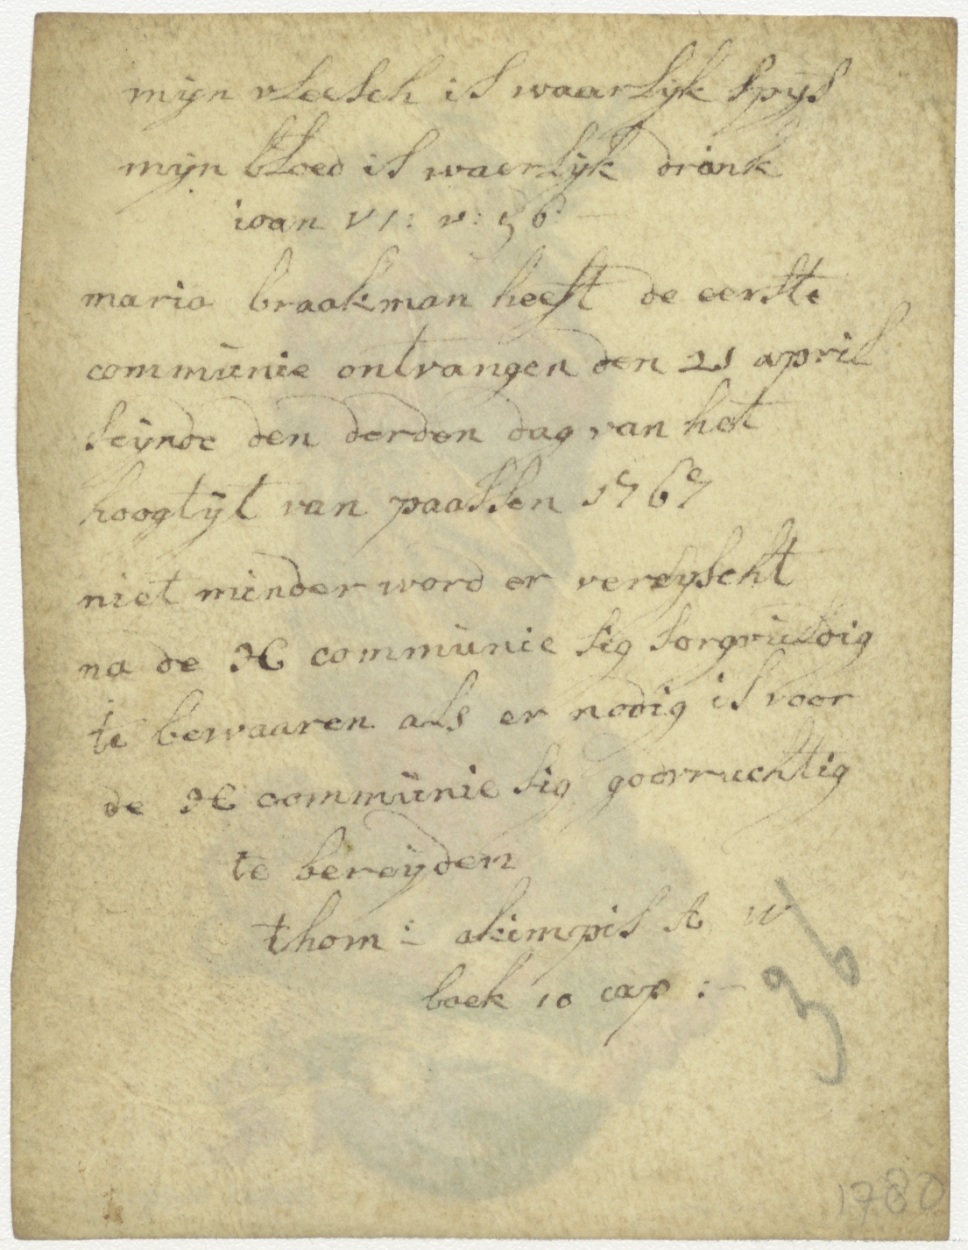 mijn vleesch is waarlyk spijs
mijn bloed is waerlijk drank
ioan VI: v: 56
maria braakman heeft de eerste
commūnie ontvangen den 21 april
seijnde den derden dag van het
hoogtijt van paassen 1767
niet minder word er vereyscht
na de H commūnie sig sorgvuldig
te bewaaren als er nodig is voor
de H commūnie sig godvruchtig
te bereijden
thom: akimpis
boek 10 cap:
36
1780